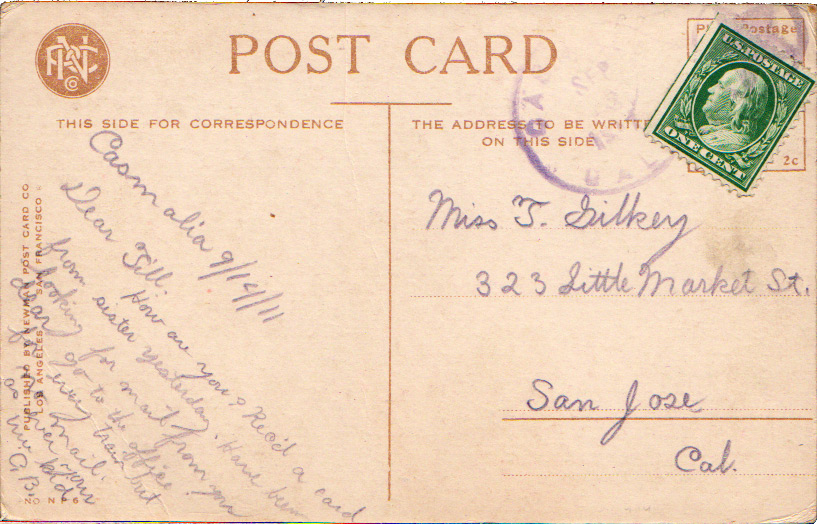 POST CARD
THIS SIDE FOR CORRESPONDENCE
THE ADDRESS TO BE WRITTE
ON THIS SIDE
Postage
2c
U.S. POSTAGE
ONE CENT
CAL
PUBLISHED BY NEWMAN POST CARD CO
LOS ANGELES SAN FRANCISCO
NO. N P 6
Casmalia 9/14/11
Dear Till.
How are you? Rec'd a card
from sister yesterday. Have been
looking for mail from you
go to the office
every train but
mail.
as ever your
old
G.B.
Miss T. Gilkey
323 Little Market St.
San Jose
Cal.